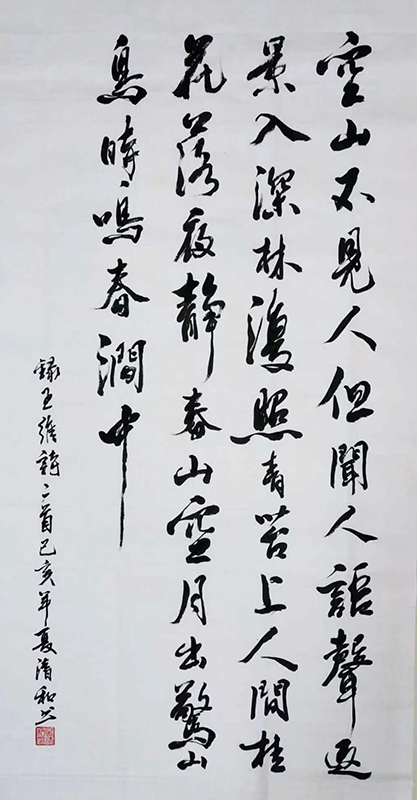 空山不見人但聞人語聲返
景入深林復照青苔上人間桂
花落夜靜春山空月出驚山
鳥時鳴春澗中
錄王維詩二首己亥年夏清和书